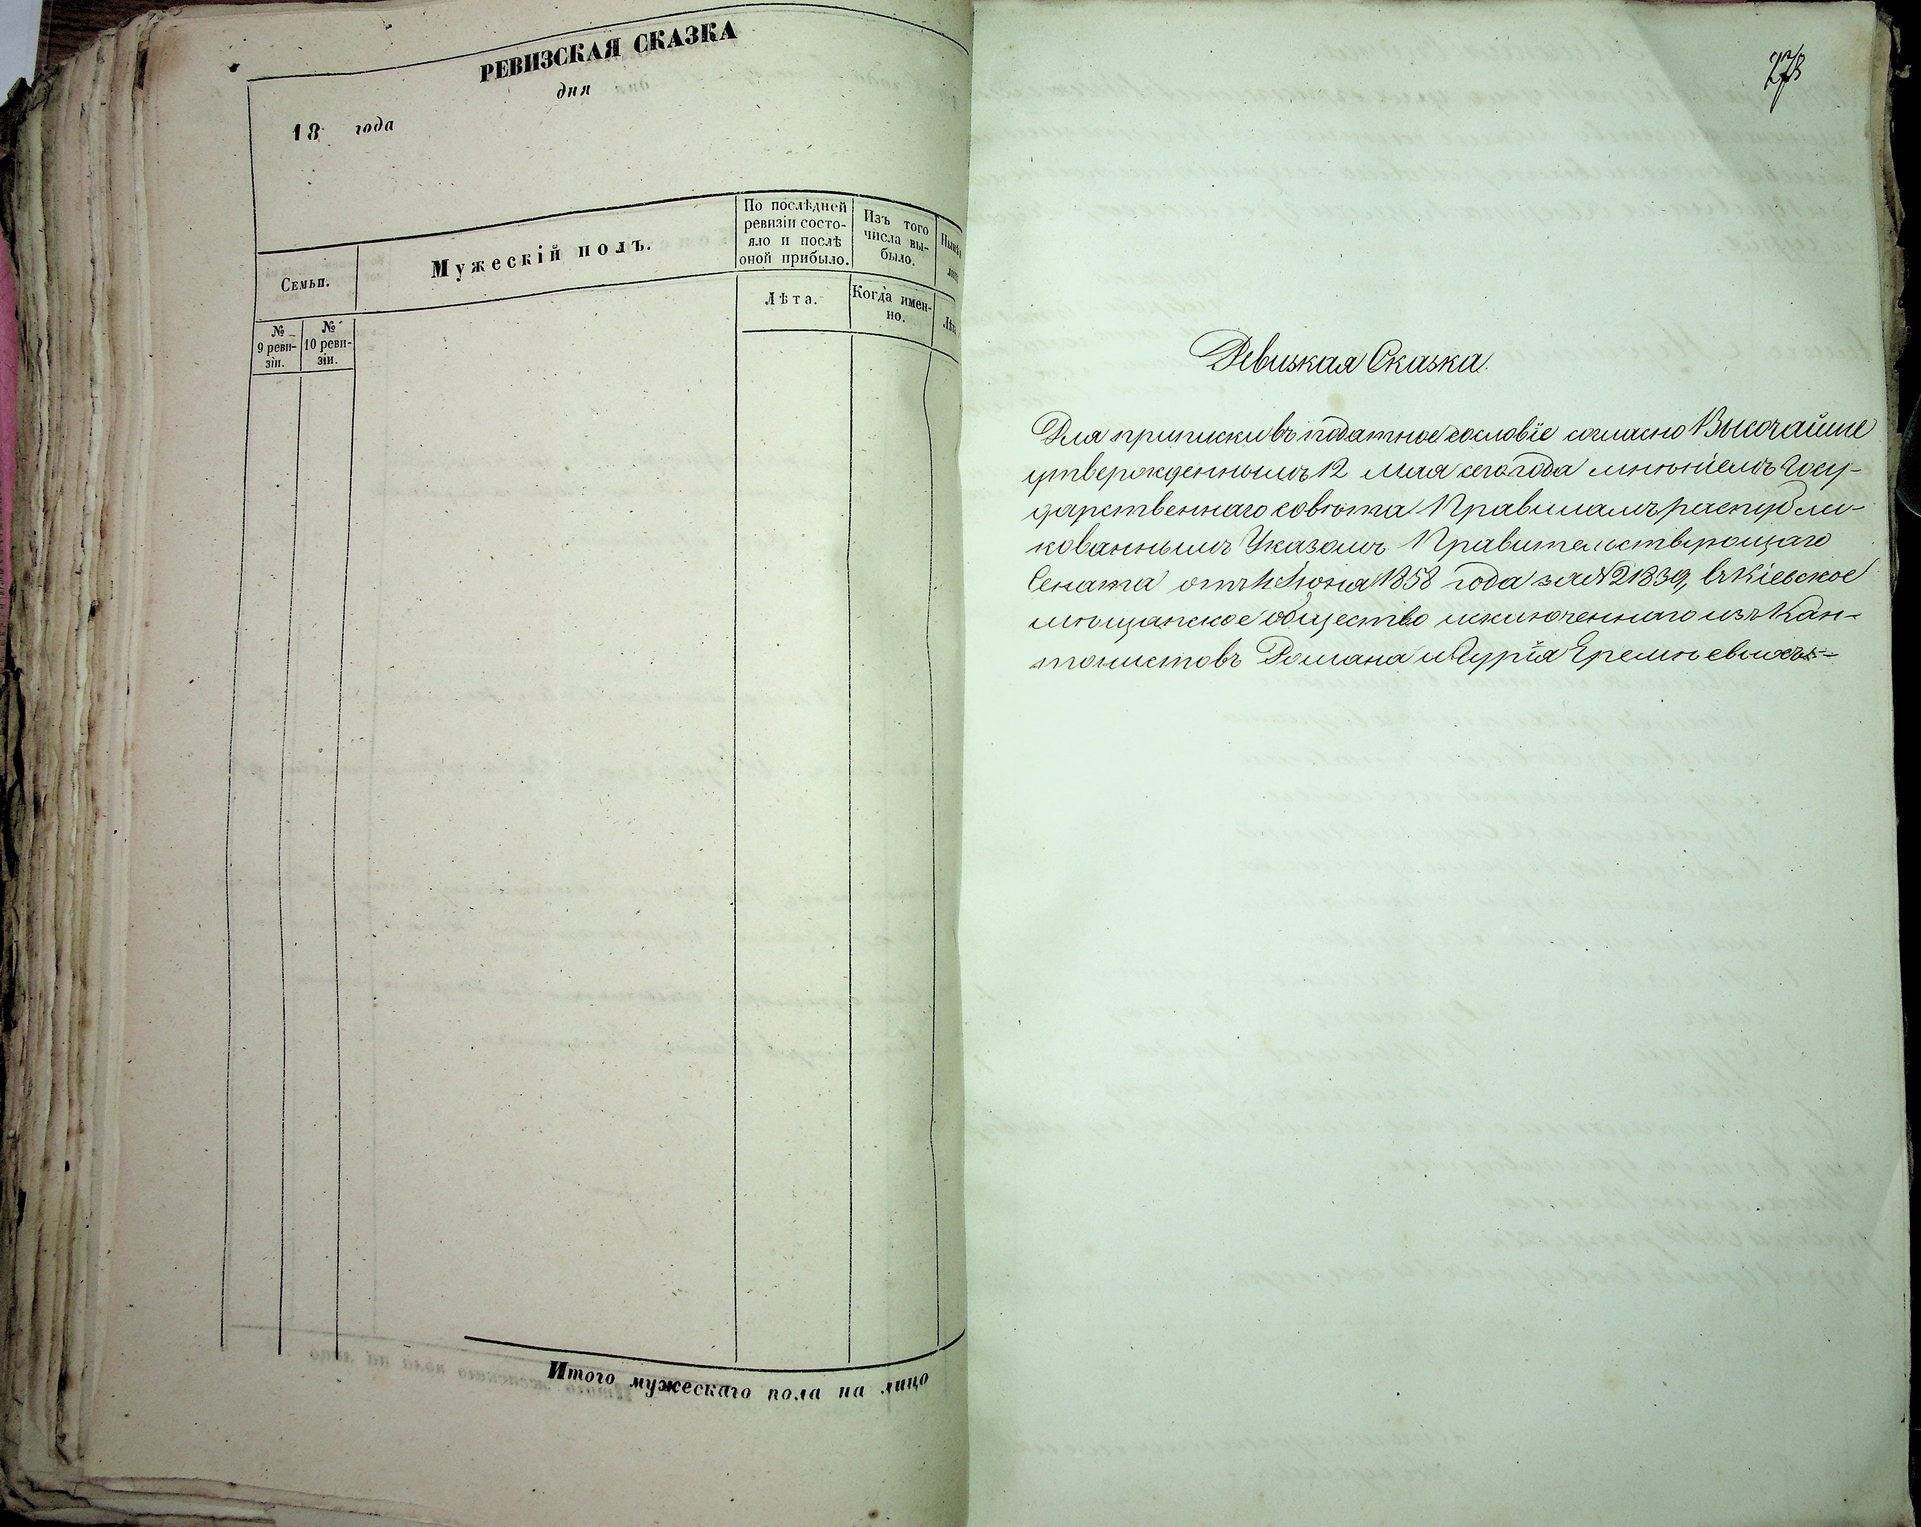 РЕВИЗСКАЯ СКАЗКА
дня
18 года
Семьи.
Мужескій полъ.
По послѣдней
ревизіи состо-
яло и послѣ
оной прибыло.
Изъ того
числа вы-
было.
Лѣта.
Когда имен-
но.
№
9 реви-
зіи.
№
10 реви-
зіи.
Итого мужескаго пола на лицо
273
Ревизкая Сказка.
Для приписки въ податное сословіе согласно Высочайше
утвержденнымъ 12 Мая сего года мнѣніемъ Госу-
дарственнаго совѣта Правиламъ распубли-
кованнымъ Указомъ Правительствующаго
Сената отъ Іюня 1858 года за № 21839, въ Кіевское
мѣщанское общество исключеннаго изъ Кан-
тонистовъ Романа Юрія